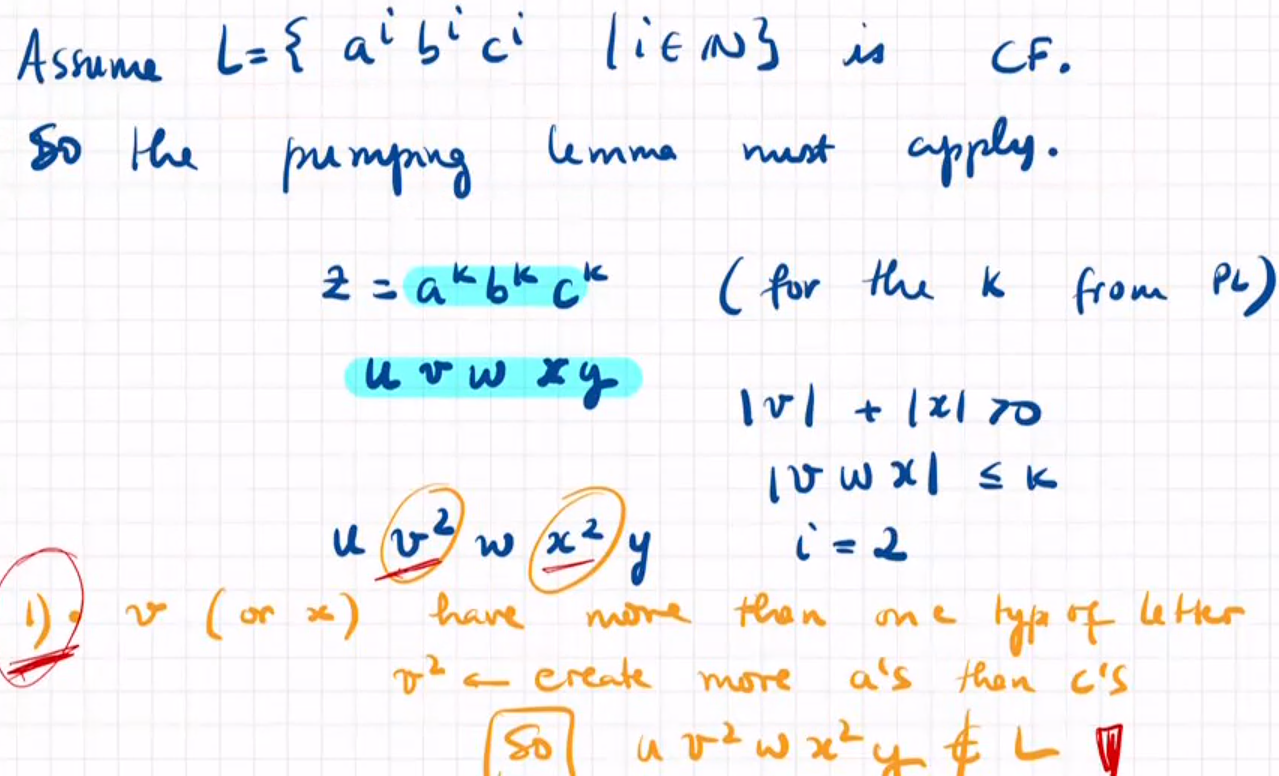 Assume L={ aⁱ bⁱ cⁱ | i ∈ ℕ} is CF.
So the pumping lemma must apply.
z = aᵏ bᵏ cᵏ (for the k from PL)
u v w x y
|v| + |x| > 0
|v w x| ≤ k
u v² w x² y i = 2
1). v (or x) have more than one typ of letter
v² ← create more a's then c's
So u v² w x² y ∉ L